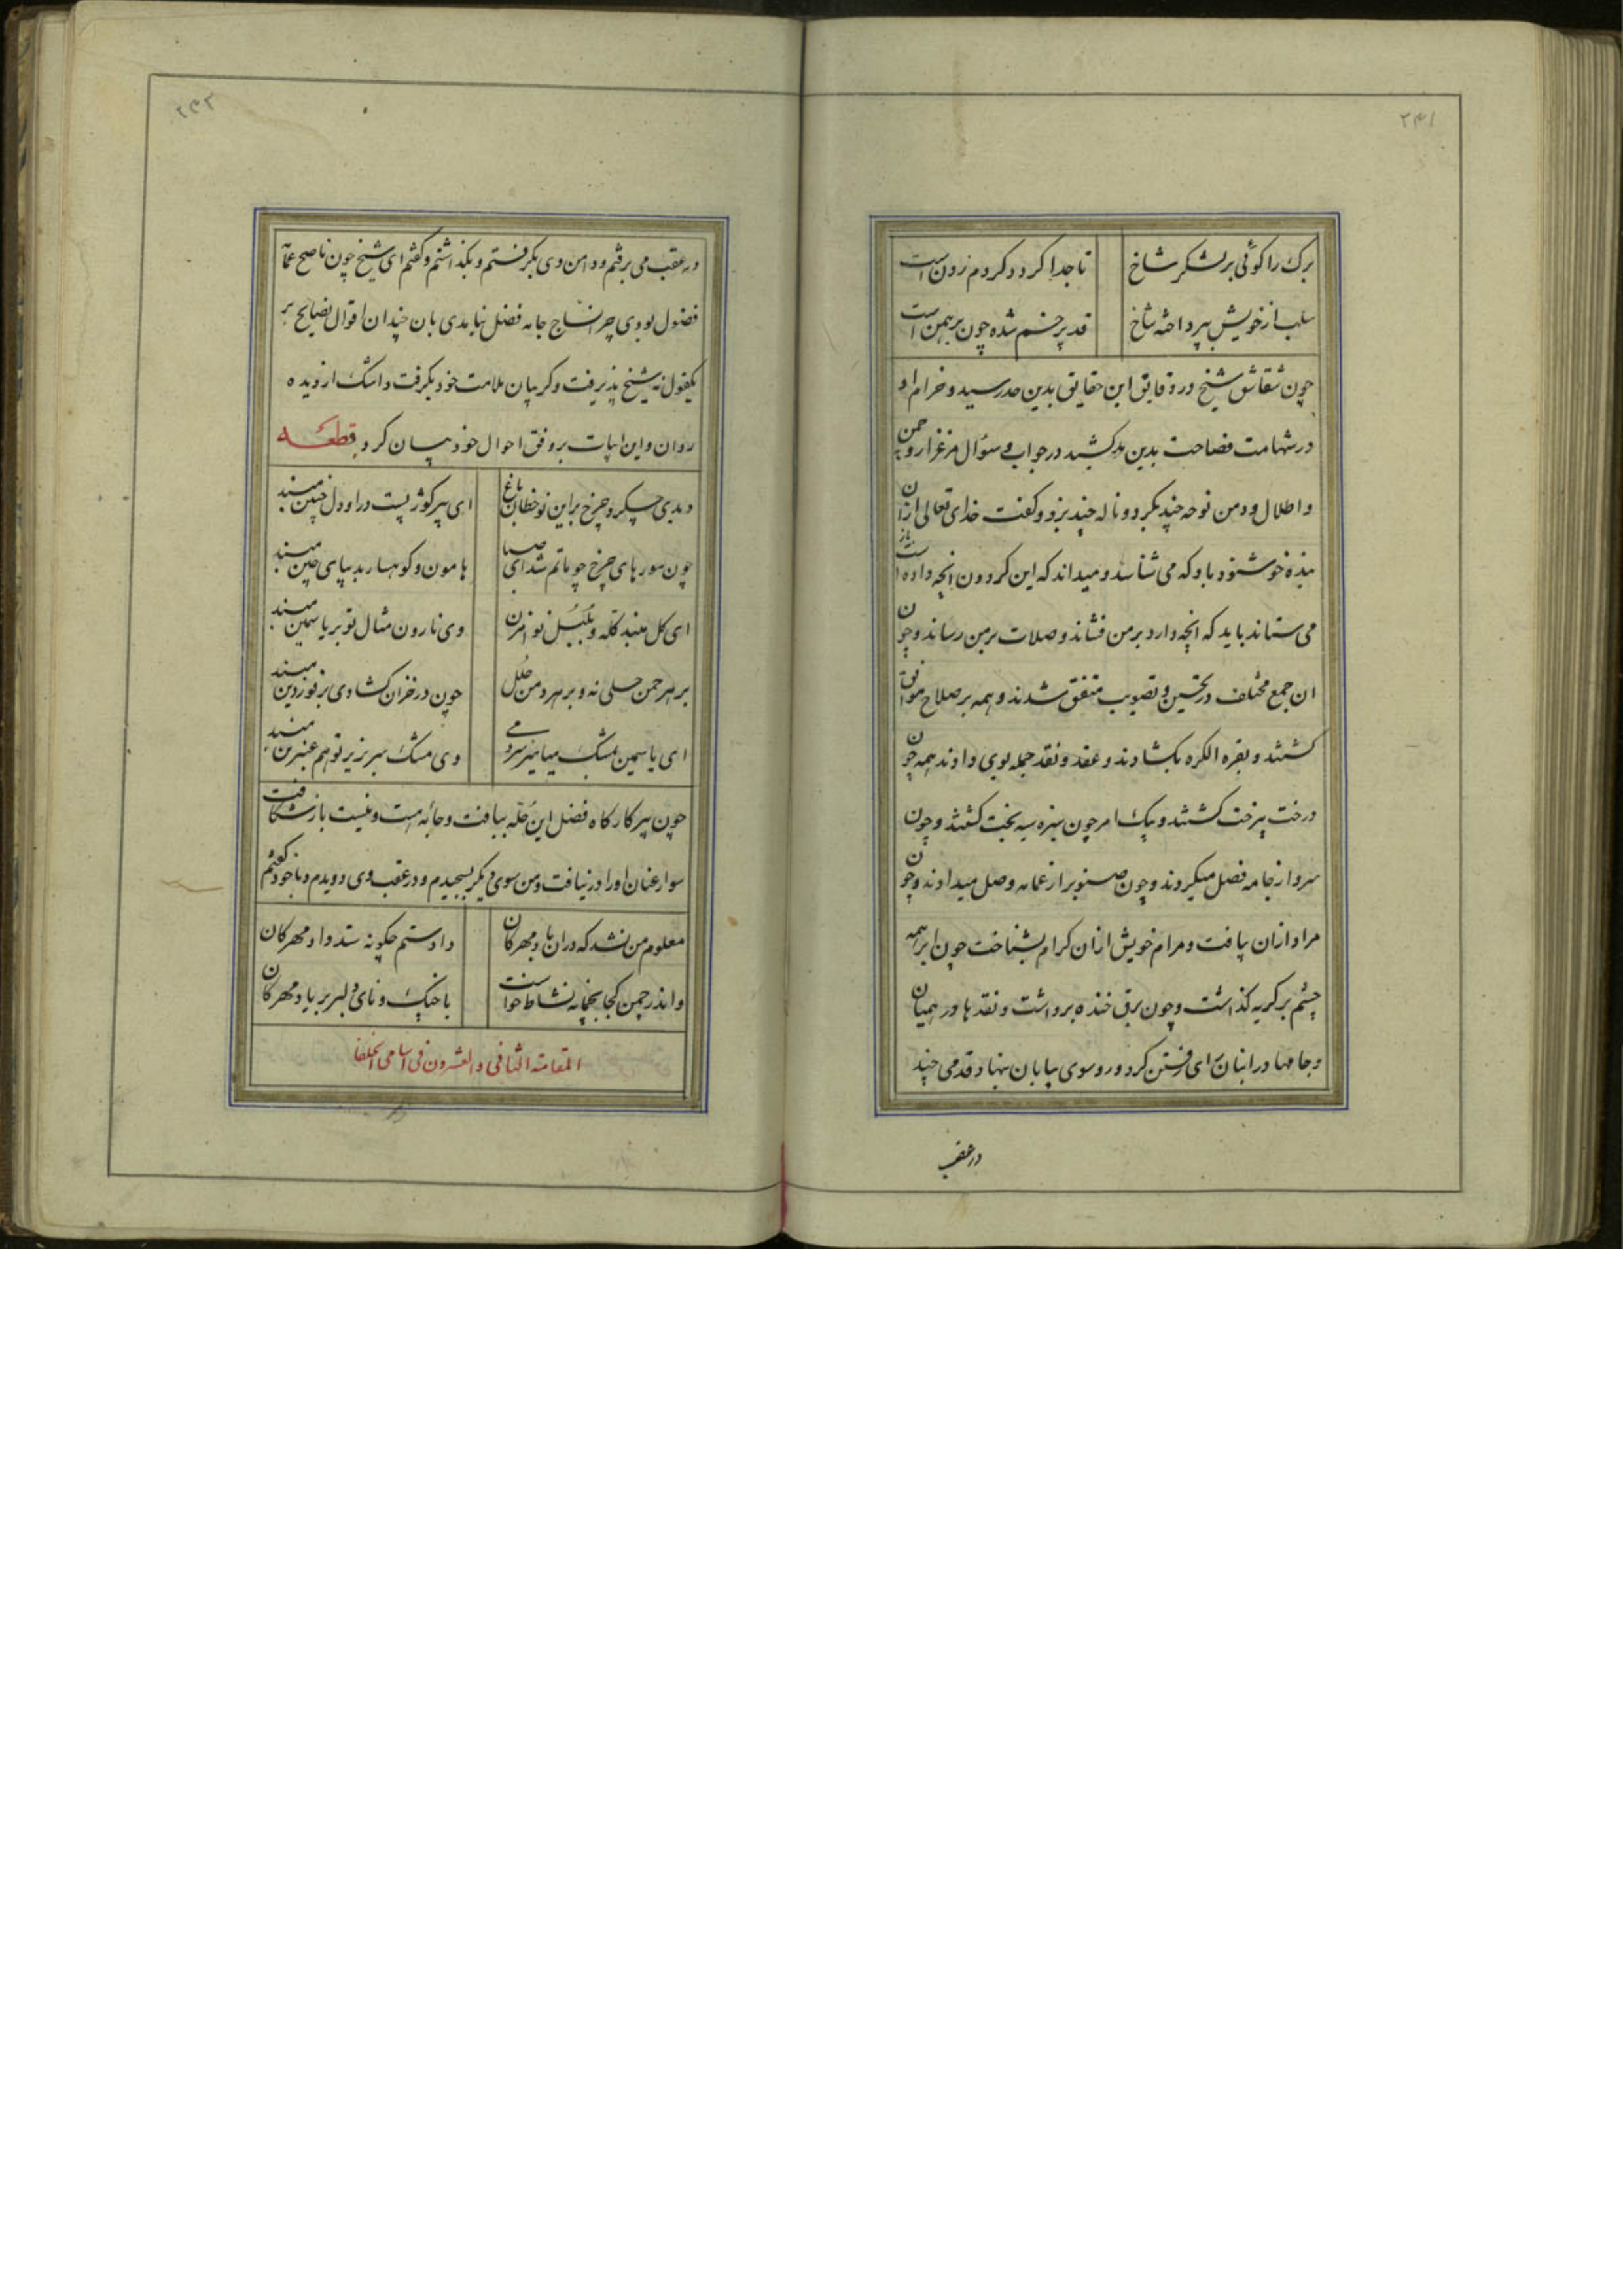 ۲۴۱
برک را کوئی بر لشکر شاخ تا جدا کردد کردم زدن است
سلب از خویش بپرداخته شاخ قد پر خم شده چون برهمن است
چون شقاشق شیخ در دقایق این حقایق بدین حد رسید و خرام او
در شهامت فصاحت بدین مد کشید در جواب و سؤال مرغزار و چمن
و اطلال و دمن نوحه چند بکرد و ناله چند بزد و کفت خدای تعالی ازان
بنده خوشنود باد که می شناسد و میداند که این کردون انچه داده است باز
می ستاند باید که انچه دارد بر من فشاند و صلات بر من رساند و چون
ان جمع مختلف در تحسین و تصویب متفق شدند و همه بر صلاح موافق
کشتند و بقره الکره بکشادند و عقد و نقد جمله بوی دادند همه چون
درخت بیرخت کشتند و بیک امر چون سبزه سیه بخت کشتند و چون
سرو از جامه فصل میکردند و چون صنوبر از عمامه وصل میدادند و چون
مراد ازان بیافت و مرام خویش ازان کرام بشناخت چون ابر همه
چشم بر کریه کذاشت و چون برق خنده برداشت و نقدها در همیان
و جامها در انبان رای رفتن کرد و رو سوی بیابان نهاد قدمی چند
در عقب
۲۴۲
در عقب می برفتم و دامن وی بکرفتم و بکذاشتم و کفتم ای شیخ چون ناصح عمامه
فضول بودی چرا نساج جامه فضل نیامدی بان چندان اقوال نصایح بر
یکقول نه شیخ پذیرفت و کریبان ملامت خود بکرفت و اشک از دیده
روان و این ابیات بر وفق احوال خود بیان کرد قطعه
دیدی چکرد چرخ براین نوخطان باغ ای پیر کوژ پشت در او دل چنین مبند
چون سورهای چرخ چو ماتم شد ای صبا هامون و کوهسار بدیبای چین مبند
ای کل مبند کله و بلبل نوا مزن وی نارون مثال تو بر یاسمین مبند
بر هر چمن حلی نه و بر هر دمن حلل چون در خزان کشادی بر فوردین مبند
ای یاسمین مشک میامیز سرد می وی مشک سر بزیر تو هم عنبرین مبند
چون پیر کارکاه فضل این حله ببافت و جائه هست و نیست باز شکافت
سوار عنان او را در نیافت و من سوی دیکر بسیجیدم و در عقب وی دویدم و با خود کفتم
معلوم من نشد که دران باد مهرکان داد و ستم چکونه ستد داد مهرکان
واندر چمن کجا بخمانه نشاط خواست با چنک و نای دلبر بر یاد مهرکان
المقامة الثانی والعشرون فی اسامی الخلفا